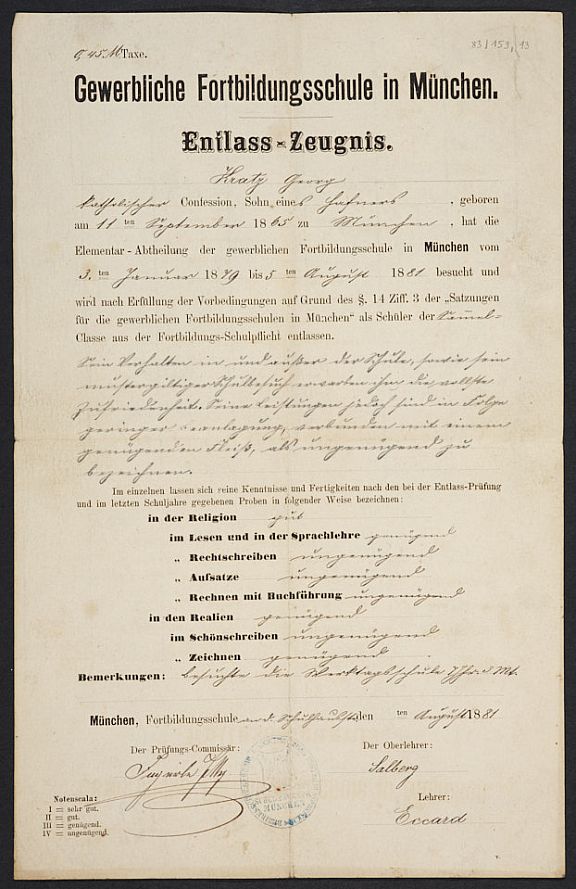 0,45 M Taxe.
83/153,13
Gewerbliche Fortbildungsschule in München.
Entlass-Zeugnis.
Kratz Georg
katholischer Confession, Sohn eines Hafners, geboren
am 11ten September 1865 zu München, hat die
Elementar-Abtheilung der gewerblichen Fortbildungsschule in München vom
3.ten Januar 1879 bis 5ten August 1881 besucht und
wird nach Erfüllung der Vorbedingungen auf Grund des §. 14 Ziff. 3 der „Satzungen
für die gewerblichen Fortbildungsschulen in München" als Schüler der Sam̄el-
Classe aus der Fortbildungs-Schulpflicht entlassen.
Sein Verhalten in und außer der Schule, sowie sein
mustergiltiger Schulbesuch erwarben ihm die vollste
Zufriedenheit. Seine Leistungen jedoch sind in Folge
geringer Beanlagung, verbunden mit einem
genügenden Fleiß, als ungenügend zu
bezeichnen.
Im einzelnen lassen sich seine Kenntnisse und Fertigkeiten nach den bei der Entlass-Prüfung
und im letzten Schuljahre gegebenen Proben in folgender Weise bezeichnen:
in der Religion gut
im Lesen und in der Sprachlehre genügend
„ Rechtschreiben ungenügend
„ Aufsatze ungenügend
„ Rechnen mit Buchführung ungenügend
in den Realien genügend
im Schönschreiben ungenügend
„ Zeichnen genügend
Bemerkungen: besuchte die Werktagsschule 7 Jhr. Mt.
München, Fortbildungsschule a. d. den ten August 1881
Der Prüfungs-Commissär:
Der Oberlehrer:
Salberg
Lehrer:
Eccard
Notenscala:
I = sehr gut.
II = gut.
III = genügend.
IV = ungenügend.
MÜNCHEN